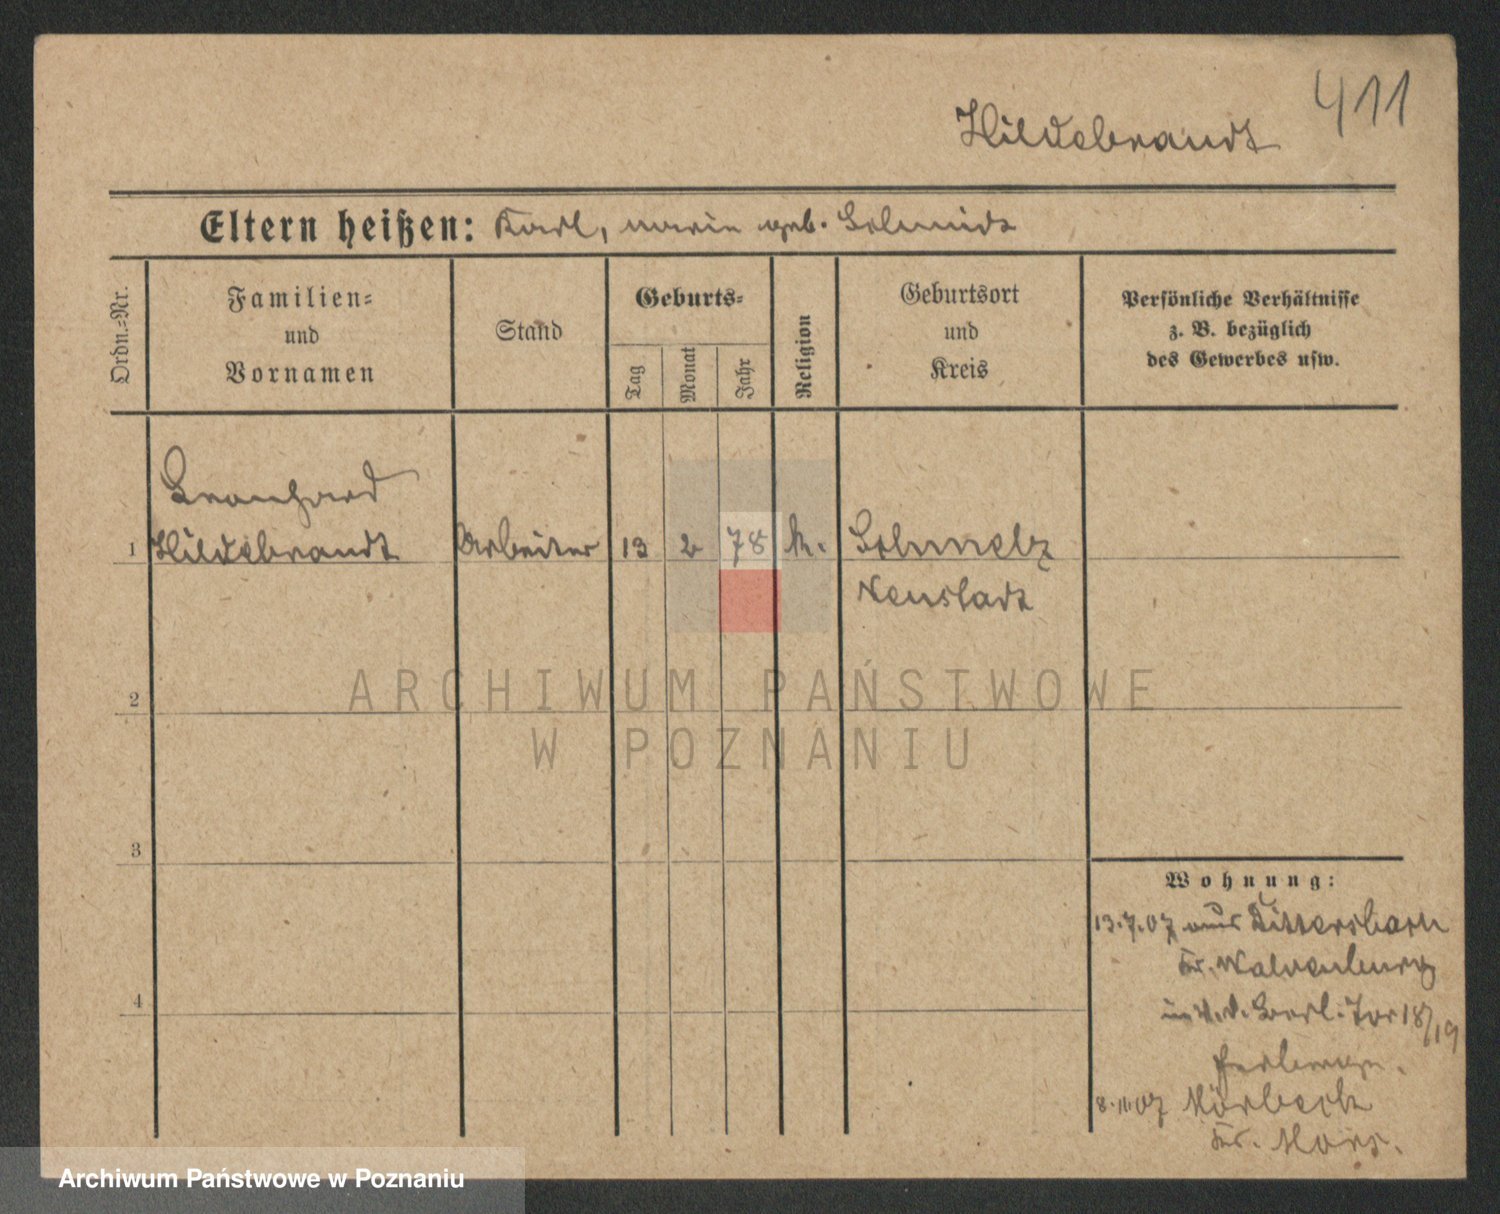 411
Hildebrandt
Eltern heißen: Karl, Marie geb. Schmidt
Ordn.=Nr.
Familien=
und
Vornamen
Stand
Geburts=
Tag
Monat
Jahr
Religion
Geburtsort
und
Kreis
Persönliche Verhältnisse
z. B. bezüglich
des Gewerbes usw.
Leonhard
1 Hildebrandt Arbeiter 13 2 78 k. Schmelz
Neustadt
2
ARCHIWUM PAŃSTWOWE
W POZNANIU
3
Wohnung:
13.7.07 aus Dittersbach
Kr. Waldenburg
in Berl. Tor 18/19
8.11.07
Kr. Mörs.
4
Archiwum Państwowe w Poznaniu